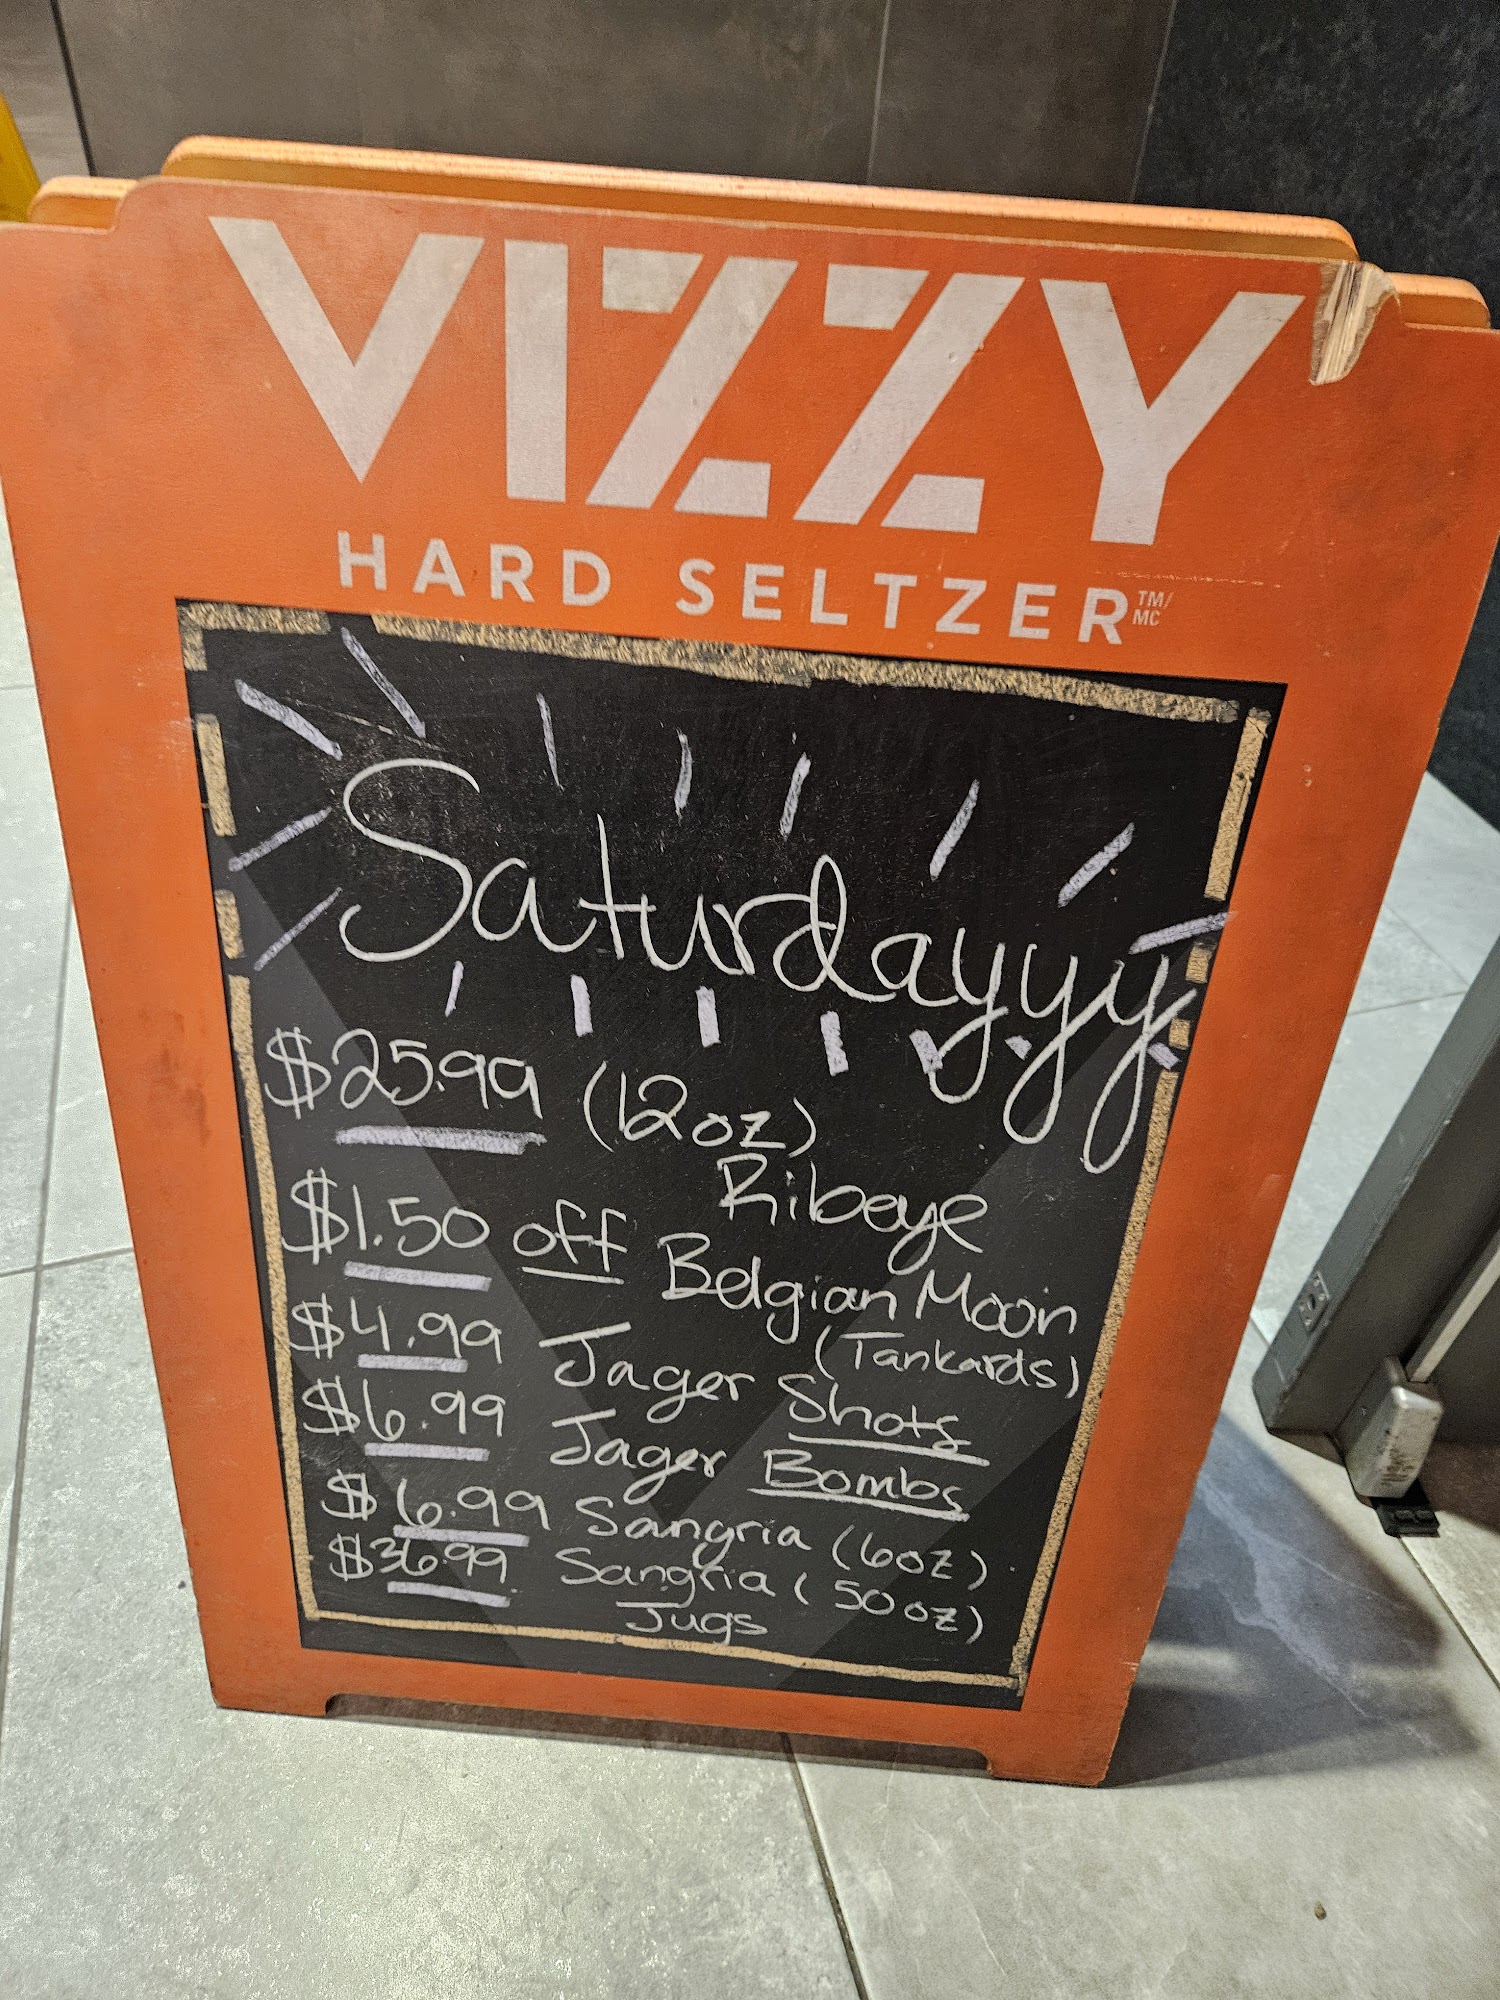 VIZZY
HARD SELTZER TM/MC
Saturdayyy
$25.99 (12oz)
Ribeye
$1.50 off Belgian Moon
(Tankards)
$4.99 Jager Shots
$6.99 Jager Bombs
$6.99 Sangria (6oz)
$36.99 Sangria (50oz)
Jugs